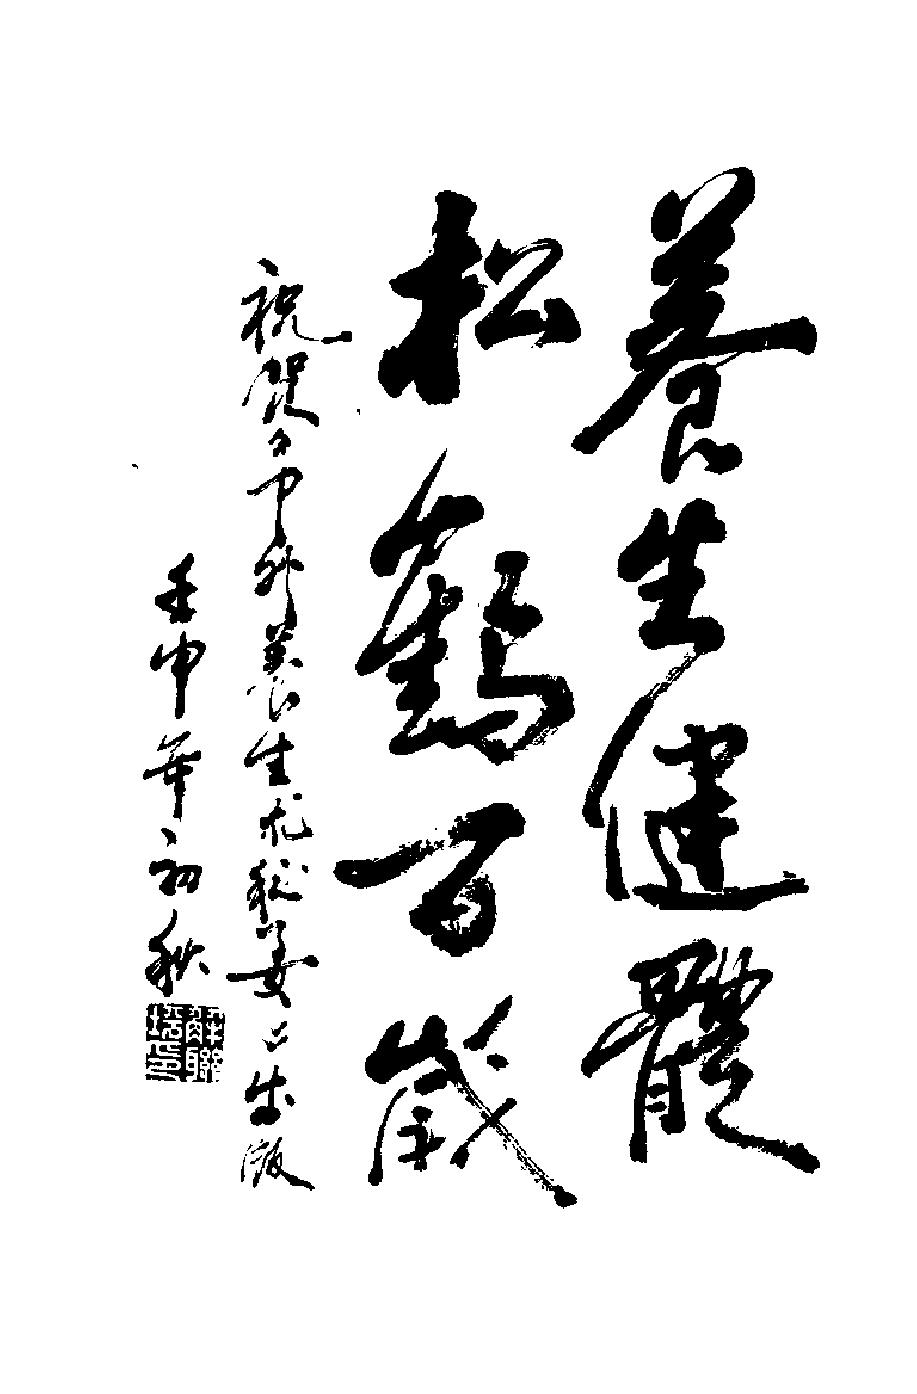 養生健體
松鶴百歲
祝贺《中外養生术秘要》出版
壬申年初秋